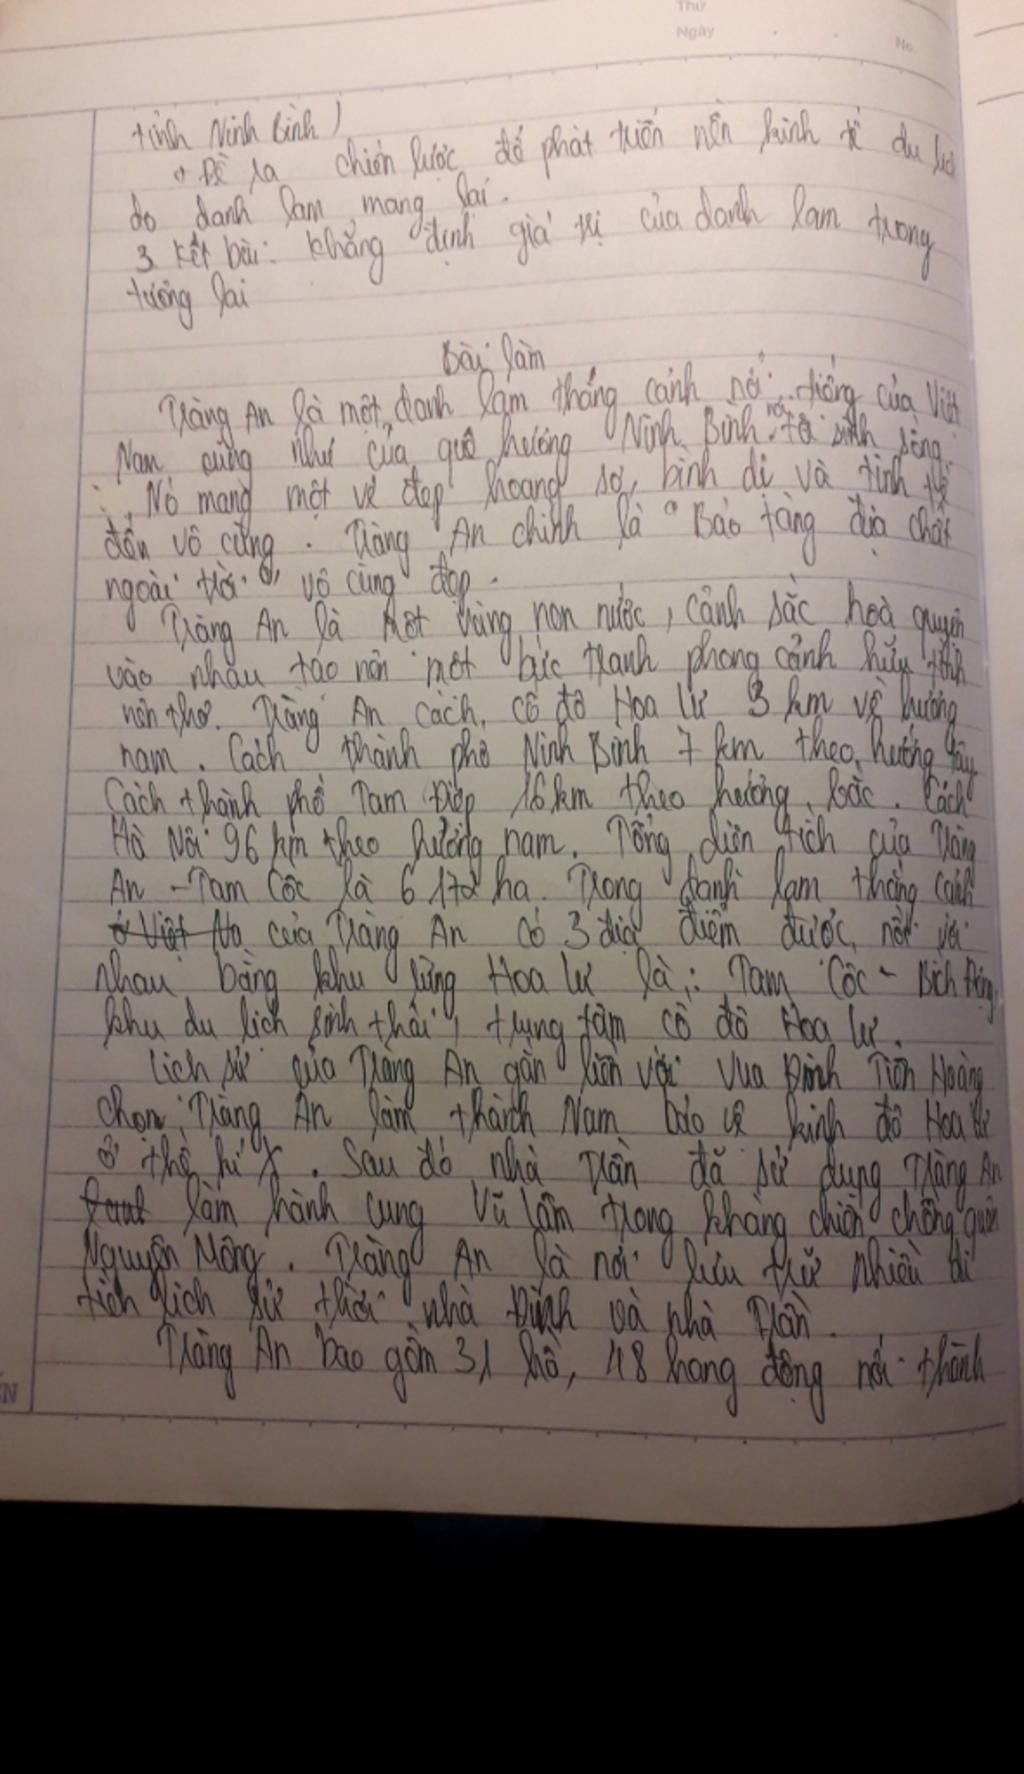 Thứ
Ngày
No.
tỉnh Ninh Bình)
+ Đề ra chiến lược để phát triển nền kinh tế du lịch
do danh lam mang lại.
3. Kết bài: Khẳng định giá trị của danh lam trong
tương lai
Bài làm
Tràng An là một danh lam thắng cảnh nổi tiếng của Việt
Nam cũng như của quê hương Ninh Bình nơi tôi sinh sống.
Nó mang một vẻ đẹp hoang sơ, bình dị và tinh tế
đến vô cùng. Tràng An chính là "Bảo tàng địa chất
ngoài trời" vô cùng đẹp.
Tràng An là một vùng non nước, cảnh sắc hoà quyện
vào nhau tạo nên một bức tranh phong cảnh hữu tình
nên thơ. Tràng An cách cố đô Hoa Lư 3 km về hướng
nam. Cách thành phố Ninh Bình 7 km theo hướng tây
Cách thành phố Tam Điệp 16km theo hướng bắc. Cách
Hà Nội 96 km theo hướng nam. Tổng diện tích của Tràng
An - Tam Cốc là 6 172 ha. Trong danh lam thắng cảnh
ở Việt Na của Tràng An có 3 địa điểm được nối với
nhau bằng khu rừng Hoa Lư là: Tam Cốc - Bích Động,
khu du lịch sinh thái, trung tâm cố đô Hoa Lư.
Lịch sử của Tràng An gắn liền với Vua Đinh Tiên Hoàng
chọn Tràng An làm thành Nam bảo vệ kinh đô Hoa Lư
ở thế kỉ X. Sau đó nhà Trần đã sử dụng Tràng An
làm hành cung Vũ Lâm trong kháng chiến chống quân
Nguyên Mông. Tràng An là nơi lưu trữ nhiều di
tích lịch sử thời nhà Đinh và nhà Trần.
Tràng An bao gồm 31 hồ, 48 hang động nối thành